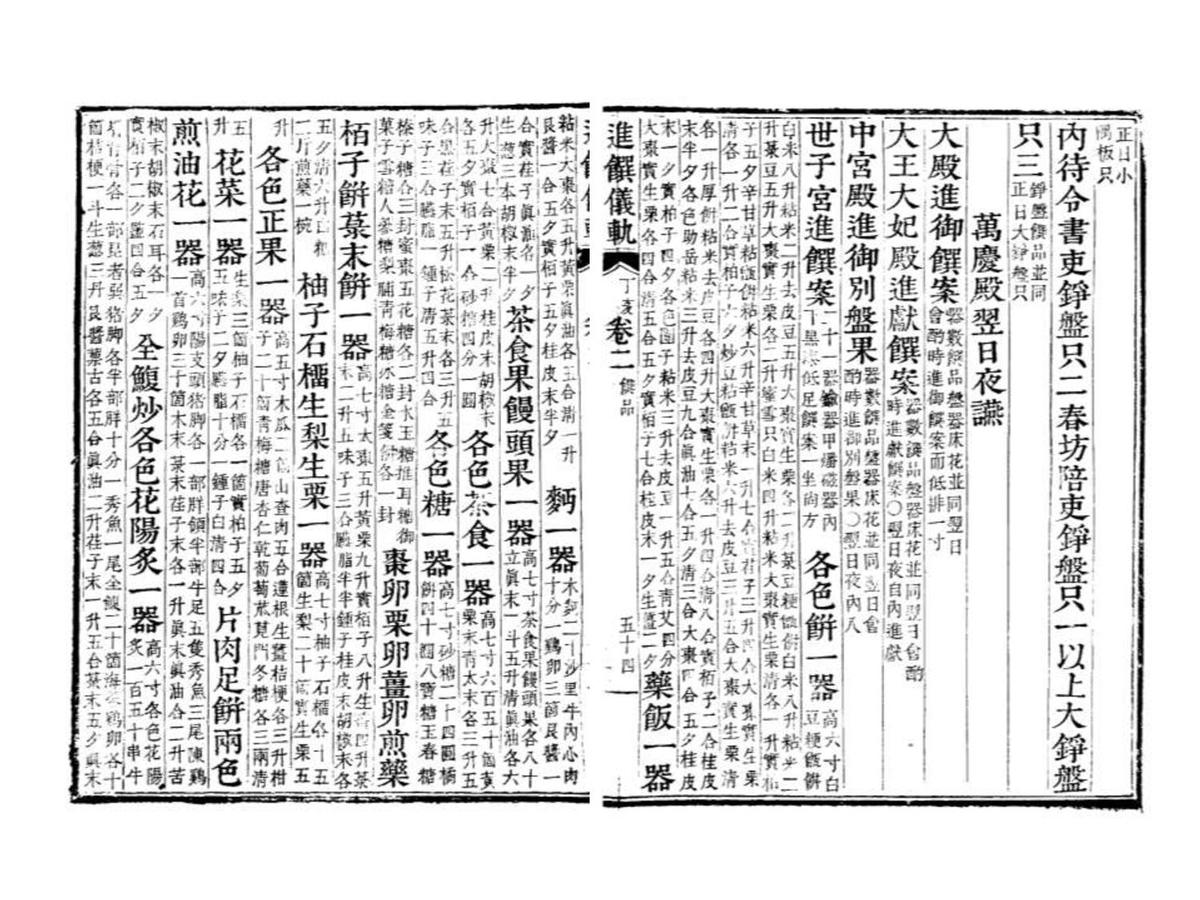 正日小
內待令書吏錚盤只二春坊陪吏錚盤只一以上大錚盤
只三 錚盤饌品並同
正日大錚盤只
萬慶殿翌日夜讌
大殿進御饌案 器數饌品盤器床花並同翌日
會酌時進御饌案而低排一寸
大王大妃殿進獻饌案 器數饌品盤器床花並同翌日會酌
時進獻饌案○翌日夜自內進獻
中宮殿進御別盤果 器數饌品盤器床花並同翌日會
酌時進御別盤果○翌日夜內入
世子宮進饌案 二十一器鍮器甲燔磁器內
下黑漆低足饌案一坐尚方
各色餠一器 高六寸白
豆粳甑餠
白米八升粘米二升去皮豆五升大棗實生栗各二升菉豆粳甑餠白米八升粘米二
升菉豆五升大棗實生栗各二升蜜雪只白米四升粘米大棗實生栗清各一升實柏
子五夕辛甘草粘甑餠粘米六升辛甘草末一升
清各一升二合實柏子六夕炒豆粘甑餠粘米六升去皮豆三升五合大棗實生栗清
各一升厚餠粘米去皮豆各四升大棗實生栗各一升四合清八合實柏子二合桂皮
末半夕各色助岳粘米三升去皮豆九合眞油七合五夕清三合大棗四合五夕桂皮
末一夕實柏子四夕各色團子粘米三升去皮豆一升五合青艾四分
大棗實生栗各四合清五合五夕實柏子七合桂皮末一夕生薑二夕
藥飯一器
進饌儀軌
丁亥
卷二
饌品
五十四
粘米大棗各五升黃栗眞油各五合清一升
艮醬一合五夕實柏子五夕桂皮末半夕
麪一器 木麪二十沙里牛內心肉
十分一鷄卵三箇艮醬一
合實荏子眞油各一夕
生葱三本胡椒末半夕
茶食果饅頭果一器 高七寸茶食果饅頭果各八十
立眞末一斗五升清眞油各六
升大棗七合黃栗二升桂皮末胡椒末
各五夕實柏子一合砂糖四分一圓
各色茶食一器 高七寸六百五十箇黃
栗末青太末各三升五
合黑荏子末五升松花葉末各三升五
味子三合臙脂一鍾子清五升四合
各色糖一器 高七寸砂糖二十四圓橘
餠四十圓八寶糖玉春糖
榛子糖各三封蜜棗五花糖各一封水玉糖推耳糖御
菓子雪糖人蔘糖梨脯青梅糖氷糖金箋餠各一封
棗卵栗卵薑卵煎藥
栢子餠菉末餠一器 高七寸大棗五升黃栗九升實栢子八升生薑四升菉
末一升五味子三合臙脂半半鍾子桂皮末胡椒末各
五夕清六升白粉
二斤煎藥一椀
柚子石榴生梨生栗一器 高七寸柚子石榴各十五
箇生梨二十箇實生栗五
升
各色正果一器 高五寸木瓜二箇山査肉五合蓮根生薑桔梗各三升柑
子二十箇青梅糖唐杏仁乾葡萄苽莫門冬糖各三兩清
五
升
花菜一器 生梨三箇柚子石榴各一箇實柏子五夕
五味子二夕臙脂十分一鍾子白清四合
片肉足餠兩色
煎油花一器 高六寸陽支頭猪脚各一部胖領半部牛足五隻秀魚三尾陳鷄
一首鷄卵三十箇木末菉末荏子末各一升眞末眞油各二升苦
椒末胡椒末石耳各一夕
實柏子二夕鹽四合五夕
全鰒炒各色花陽炙一器 高六寸各色花陽
炙一百五十串牛
部昆者巽猪脚各半部胖十分一秀魚一尾全鰒二十箇海蔘鷄卵各十
箇桔梗一斗生葱三丹艮醬蔈古各五合眞油二升荏子末一升五合菉末五夕眞末